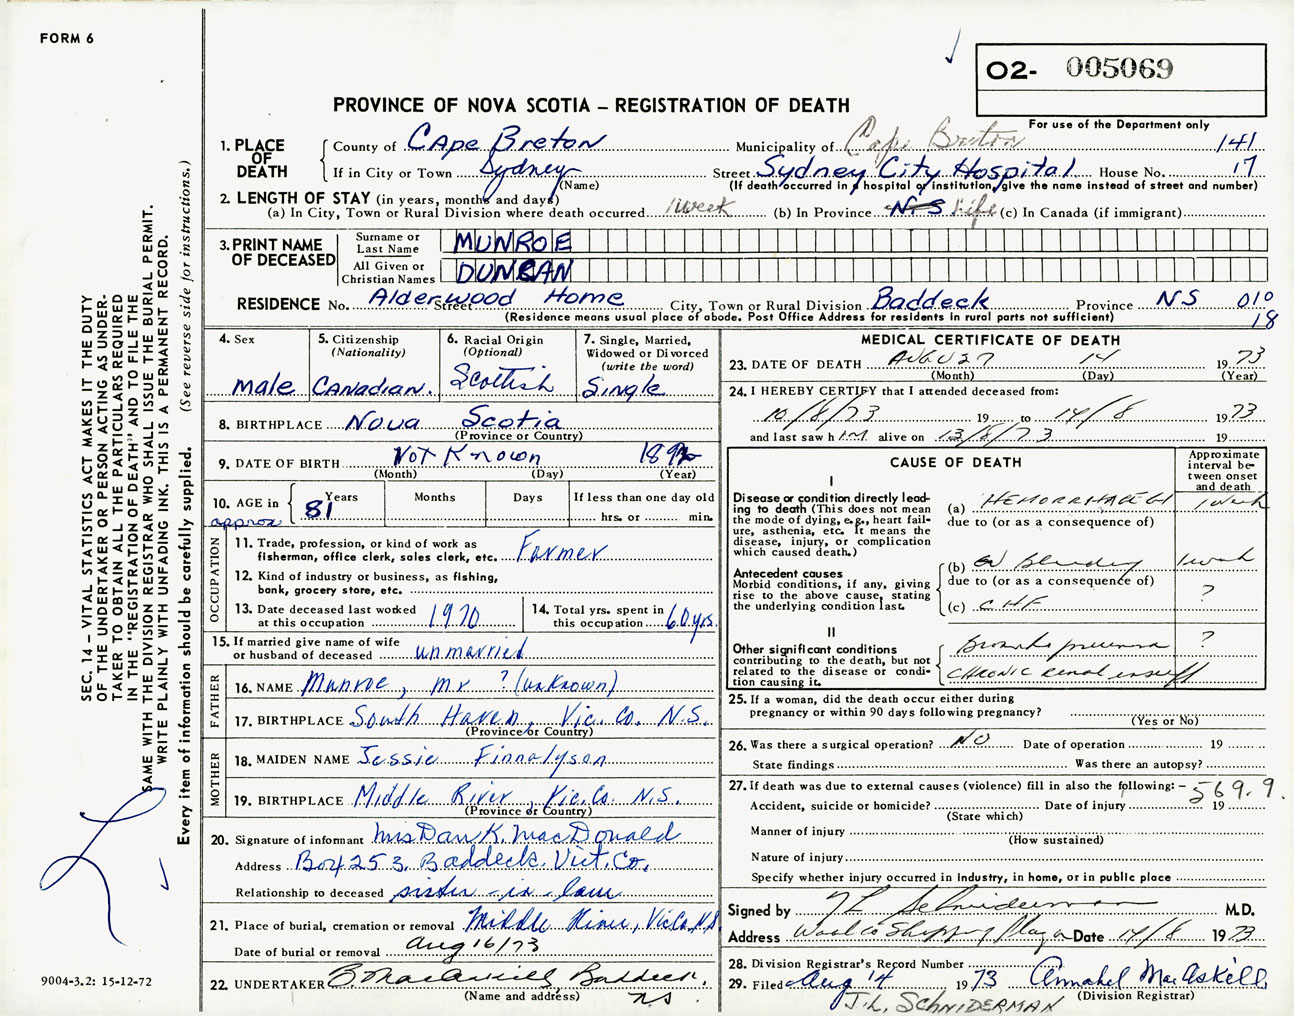 FORM 6
O2- 005069
PROVINCE OF NOVA SCOTIA – REGISTRATION OF DEATH
For use of the Department only
1. PLACE OF DEATH { County of Cape Breton Municipality of Cape Breton 141
If in City or Town Sydney (Name) Street Sydney City Hospital House No. 17
(If death occurred in a hospital or institution, give the name instead of street and number)
2. LENGTH OF STAY (in years, months and days)
(a) In City, Town or Rural Division where death occurred 1 week (b) In Province N-S Life (c) In Canada (if immigrant)
3. PRINT NAME OF DECEASED
Surname or Last Name MUNROE
All Given or Christian Names DUNCAN
RESIDENCE No. Alderwood Home Street City, Town or Rural Division Baddeck Province NS 010
(Residence means usual place of abode. Post Office Address for residents in rural parts not sufficient) 18
4. Sex male
5. Citizenship (Nationality) Canadian.
6. Racial Origin (Optional) Scottish
7. Single, Married, Widowed or Divorced (write the word) Single
8. BIRTHPLACE Nova Scotia
(Province or Country)
9. DATE OF BIRTH Not Known 1892
(Month) (Day) (Year)
10. AGE in { Years 81 Months Days If less than one day old hrs. or min.
approx
OCCUPATION
11. Trade, profession, or kind of work as fisherman, office clerk, sales clerk, etc. Farmer
12. Kind of industry or business, as fishing, bank, grocery store, etc.
13. Date deceased last worked at this occupation 1970
14. Total yrs. spent in this occupation 60 yrs.
15. If married give name of wife or husband of deceased unmarried
FATHER
16. NAME Munroe, Mr ? (unknown)
17. BIRTHPLACE South Haven, Vic. Co. N.S.
(Province or Country)
MOTHER
18. MAIDEN NAME Jessie Finnalyson
19. BIRTHPLACE Middle River, Vic. Co. N.S.
(Province or Country)
20. Signature of informant Mrs Dan K. MacDonald
Address Box 253, Baddeck. Vict. Co.
Relationship to deceased sister-in-law
21. Place of burial, cremation or removal Middle River, Vic Co. N.S.
Date of burial or removal Aug 16/73
22. UNDERTAKER Baddeck. NS
(Name and address)
MEDICAL CERTIFICATE OF DEATH
23. DATE OF DEATH AUGUST 14 1973
(Month) (Day) (Year)
24. I HEREBY CERTIFY that I attended deceased from:
10/8/73 19 to 14/8 1973
and last saw him alive on 13/8/73 19
CAUSE OF DEATH
Approximate interval between onset and death
I
Disease or condition directly leading to death (This does not mean the mode of dying, e.g., heart failure, asthenia, etc. It means the disease, injury, or complication which caused death.)
(a) HEMORRHAGE GI 1 week
due to (or as a consequence of)
Antecedent causes
Morbid conditions, if any, giving rise to the above cause, stating the underlying condition last.
(b) GI Bleeding 1 week
due to (or as a consequence of)
(c) CHF ?
II
Other significant conditions contributing to the death, but not related to the disease or condition causing it.
Bronchopneumonia ?
CHRONIC renal insuff
25. If a woman, did the death occur either during pregnancy or within 90 days following pregnancy?
(Yes or No)
26. Was there a surgical operation? NO Date of operation 19
State findings Was there an autopsy?
27. If death was due to external causes (violence) fill in also the following: – 569.9.
Accident, suicide or homicide? Date of injury 19
(State which)
Manner of injury
(How sustained)
Nature of injury
Specify whether injury occurred in Industry, in home, or in public place
Signed by J L Schniderman M.D.
Address Woolco Shopping Plaza Date 14/8 1973
28. Division Registrar's Record Number
29. Filed Aug 14 1973 Annabel MacAskill
(Division Registrar)
J.L. SCHNIDERMAN
SEC. 14 – VITAL STATISTICS ACT MAKES IT THE DUTY
OF THE UNDERTAKER OR PERSON ACTING AS UNDER-
TAKER TO OBTAIN ALL THE PARTICULARS REQUIRED
IN THE "REGISTRATION OF DEATH" AND TO FILE THE
SAME WITH THE DIVISION REGISTRAR WHO SHALL ISSUE THE BURIAL PERMIT.
WRITE PLAINLY WITH UNFADING INK. THIS IS A PERMANENT RECORD.
Every item of information should be carefully supplied. (See reverse side for instructions.)
9004-3.2: 15-12-72